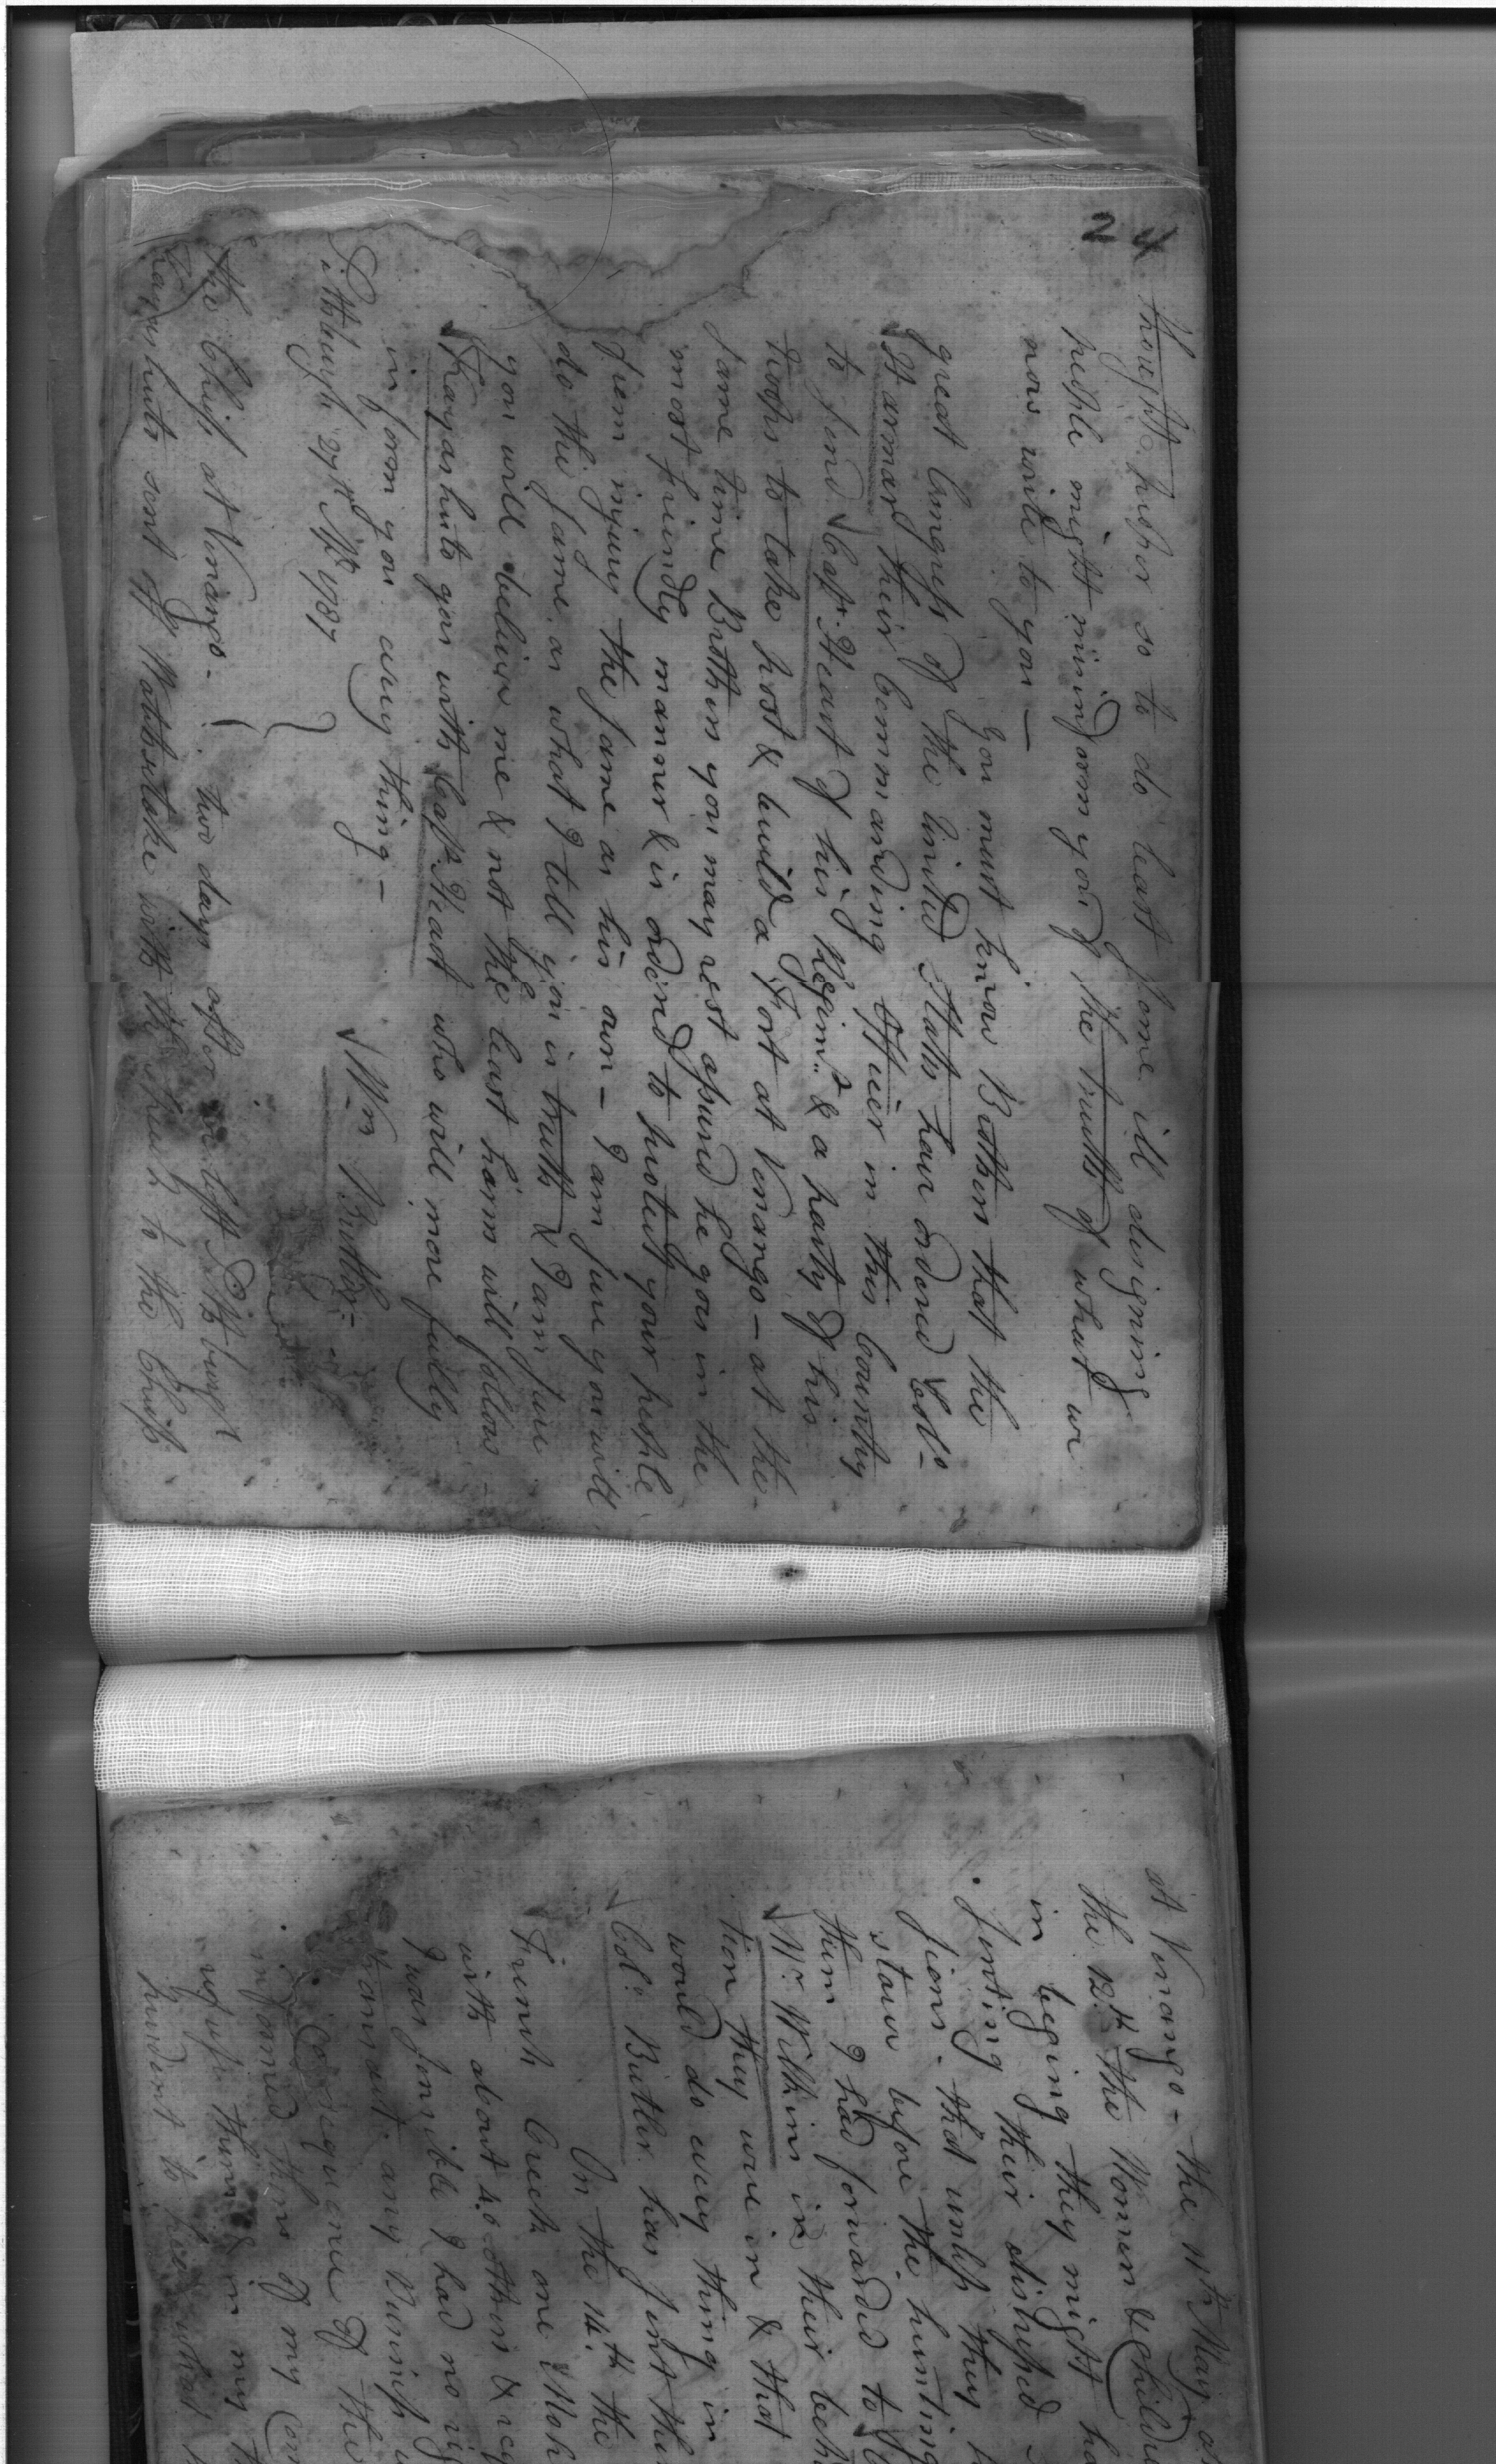 24
thought proper so to do least some ill designing
people might misinform you of the truth of what we
now write to you —
you must know Brothers that the
great Congress of the United States have ordered Colo-
Harmar their Commanding Officer in this Country
to send Capt. Heart of his Regimt. & a party of his
troops to take post & build a Fort at Venango — at the
same time Brothers you may rest assured he goes in the
most friendly manner & is orderd to protect your people
from injury the same as his own — I am sure you will
do the same as what I tell you is truth & I am sure
you will believe me & not the least harm will follow -
Kayashuto goes with Capt. Heart who will more fully
inform you every thing -
Wm Butler =
Pittsburgh 27th Apl 1787
the Chiefs at Venango - two days after we left Pittsburgh
Kayashuto sent off Wattsutake with the Speech to the Chiefs
at Venango - the 11th May
the 12th the Women & Childr
in beging they might ha
senting their distressed
sions. that unless they
starve before the hunting
them I had forwarded to
Mr. Wilkins in their beh
tion they were in & that
would do every thing in
Colo. Butler has sent the
On the 14th the
French Creek one Moh
with about 40 others & req
I was sensible I had no rig
transact any Business
Consequence of the
informed them of my Com
refuse them & in my
prudent to hear what